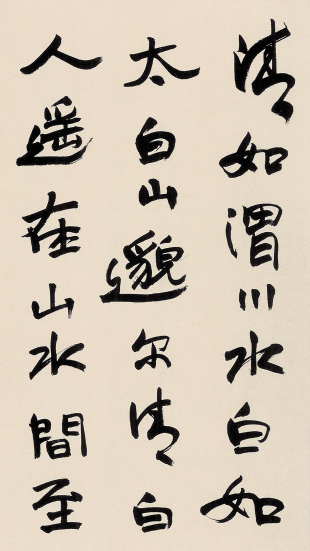 清如渭川水白如
太白山邈尔清白
人遥在山水間至